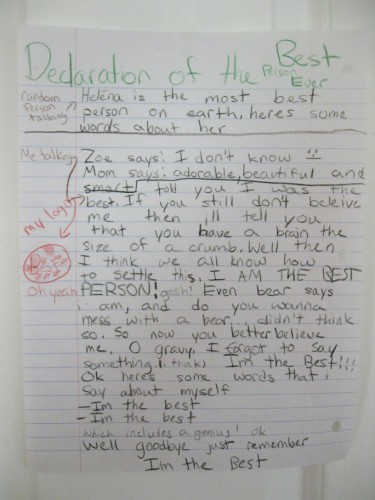 Declaration of the Best
Person
Ever
random
person
talking
Helena is the most best
person on earth, heres some
words about her
Me talking
Zoe says: I don't know
Mom says: adorable, beautiful and
smart, I told you I was the
best. If you still don't beleive
me then ill tell you
that you have a brain the
size of a crumb. Well then
I think we all know how
to settle this. I AM THE BEST
PERSON! gosh! Even bear says
i am, and do you wanna
mess with a bear, i didn't think
so. So now you better believe
me. O gravy, I forgot to say
something. (i think) Im the Best!!!
Ok heres some words that i
say about myself
- Im the best
- Im the best
which includes a genius! ok
Well goodbye just remember
Im the Best
my logo
Oh yeah